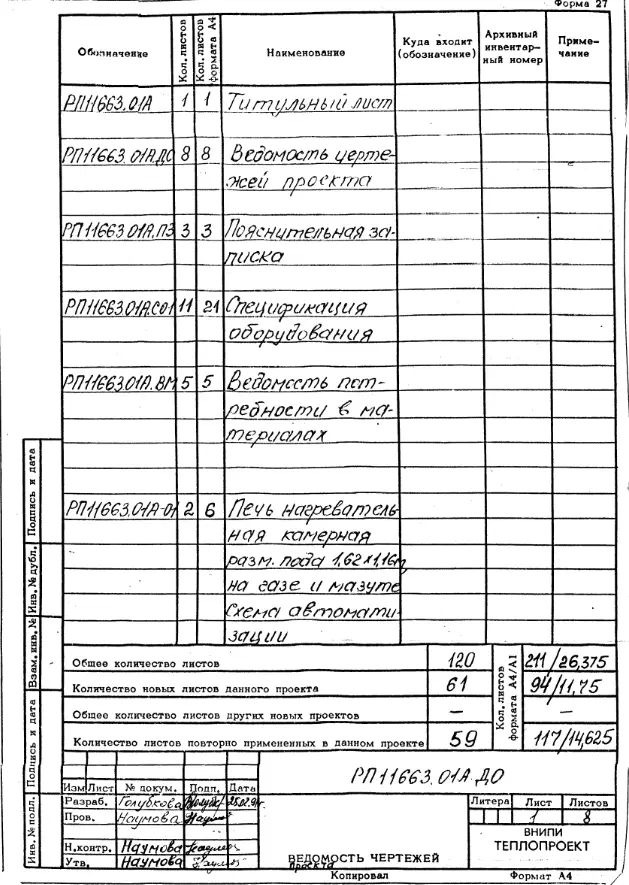 Форма 27
Обозначение Кол. листов Кол. листов формата А4 Наименование Куда входит (обозначение) Архивный инвентарный номер Примечание
РП11663.01А 1 1 Титульный лист
РП11663.01А.ДО 8 8 Ведомость черте-
жей проекта
РП11663.01А.ПЗ 3 3 Пояснительная за-
писка
РП11663.01А.СО1 11 21 Спецификация
оборудования
РП11663.01А.ВМ 5 5 Ведомость пот-
ребности в ма-
териалах
РП11663.01А-01 2 6 Печь нагреватель-
ная камерная
разм. пода 1,62х1,16м
на газе и мазуте
Схема автомати-
зации
Общее количество листов 120 211/26,375
Количество новых листов данного проекта 61 94/11,75
Общее количество листов других новых проектов — —
Количество листов повторно примененных в данном проекте 59 117/14,625
Кол. листов формата А4/А1
РП11663.01А.ДО
Изм Лист № докум. Подп. Дата
Разраб. Голубкова
Пров. Наумова
Н.контр. Наумова
Утв. Наумова
ВЕДОМОСТЬ ЧЕРТЕЖЕЙ
проекта
Литера Лист Листов
1 8
ВНИПИ
ТЕПЛОПРОЕКТ
Копировал Формат А4
Инв. № подл. Подпись и дата Взам. инв. № Инв. № дубл. Подпись и дата